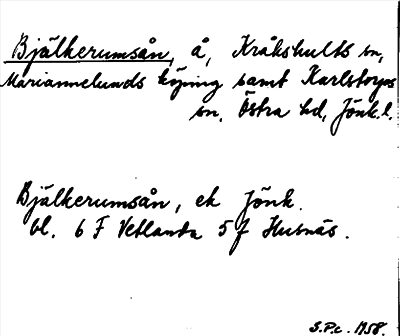 Bjälkerumsån, å, Kråkshults sn,
Mariannelunds köping samt Karlstorps
sn, Östra hd, Jönk.l.
Bjälkerumsån, ek Jönk.
bl. 6 F Vetlanda 5 f Husnäs.
S.P.c. 1958.